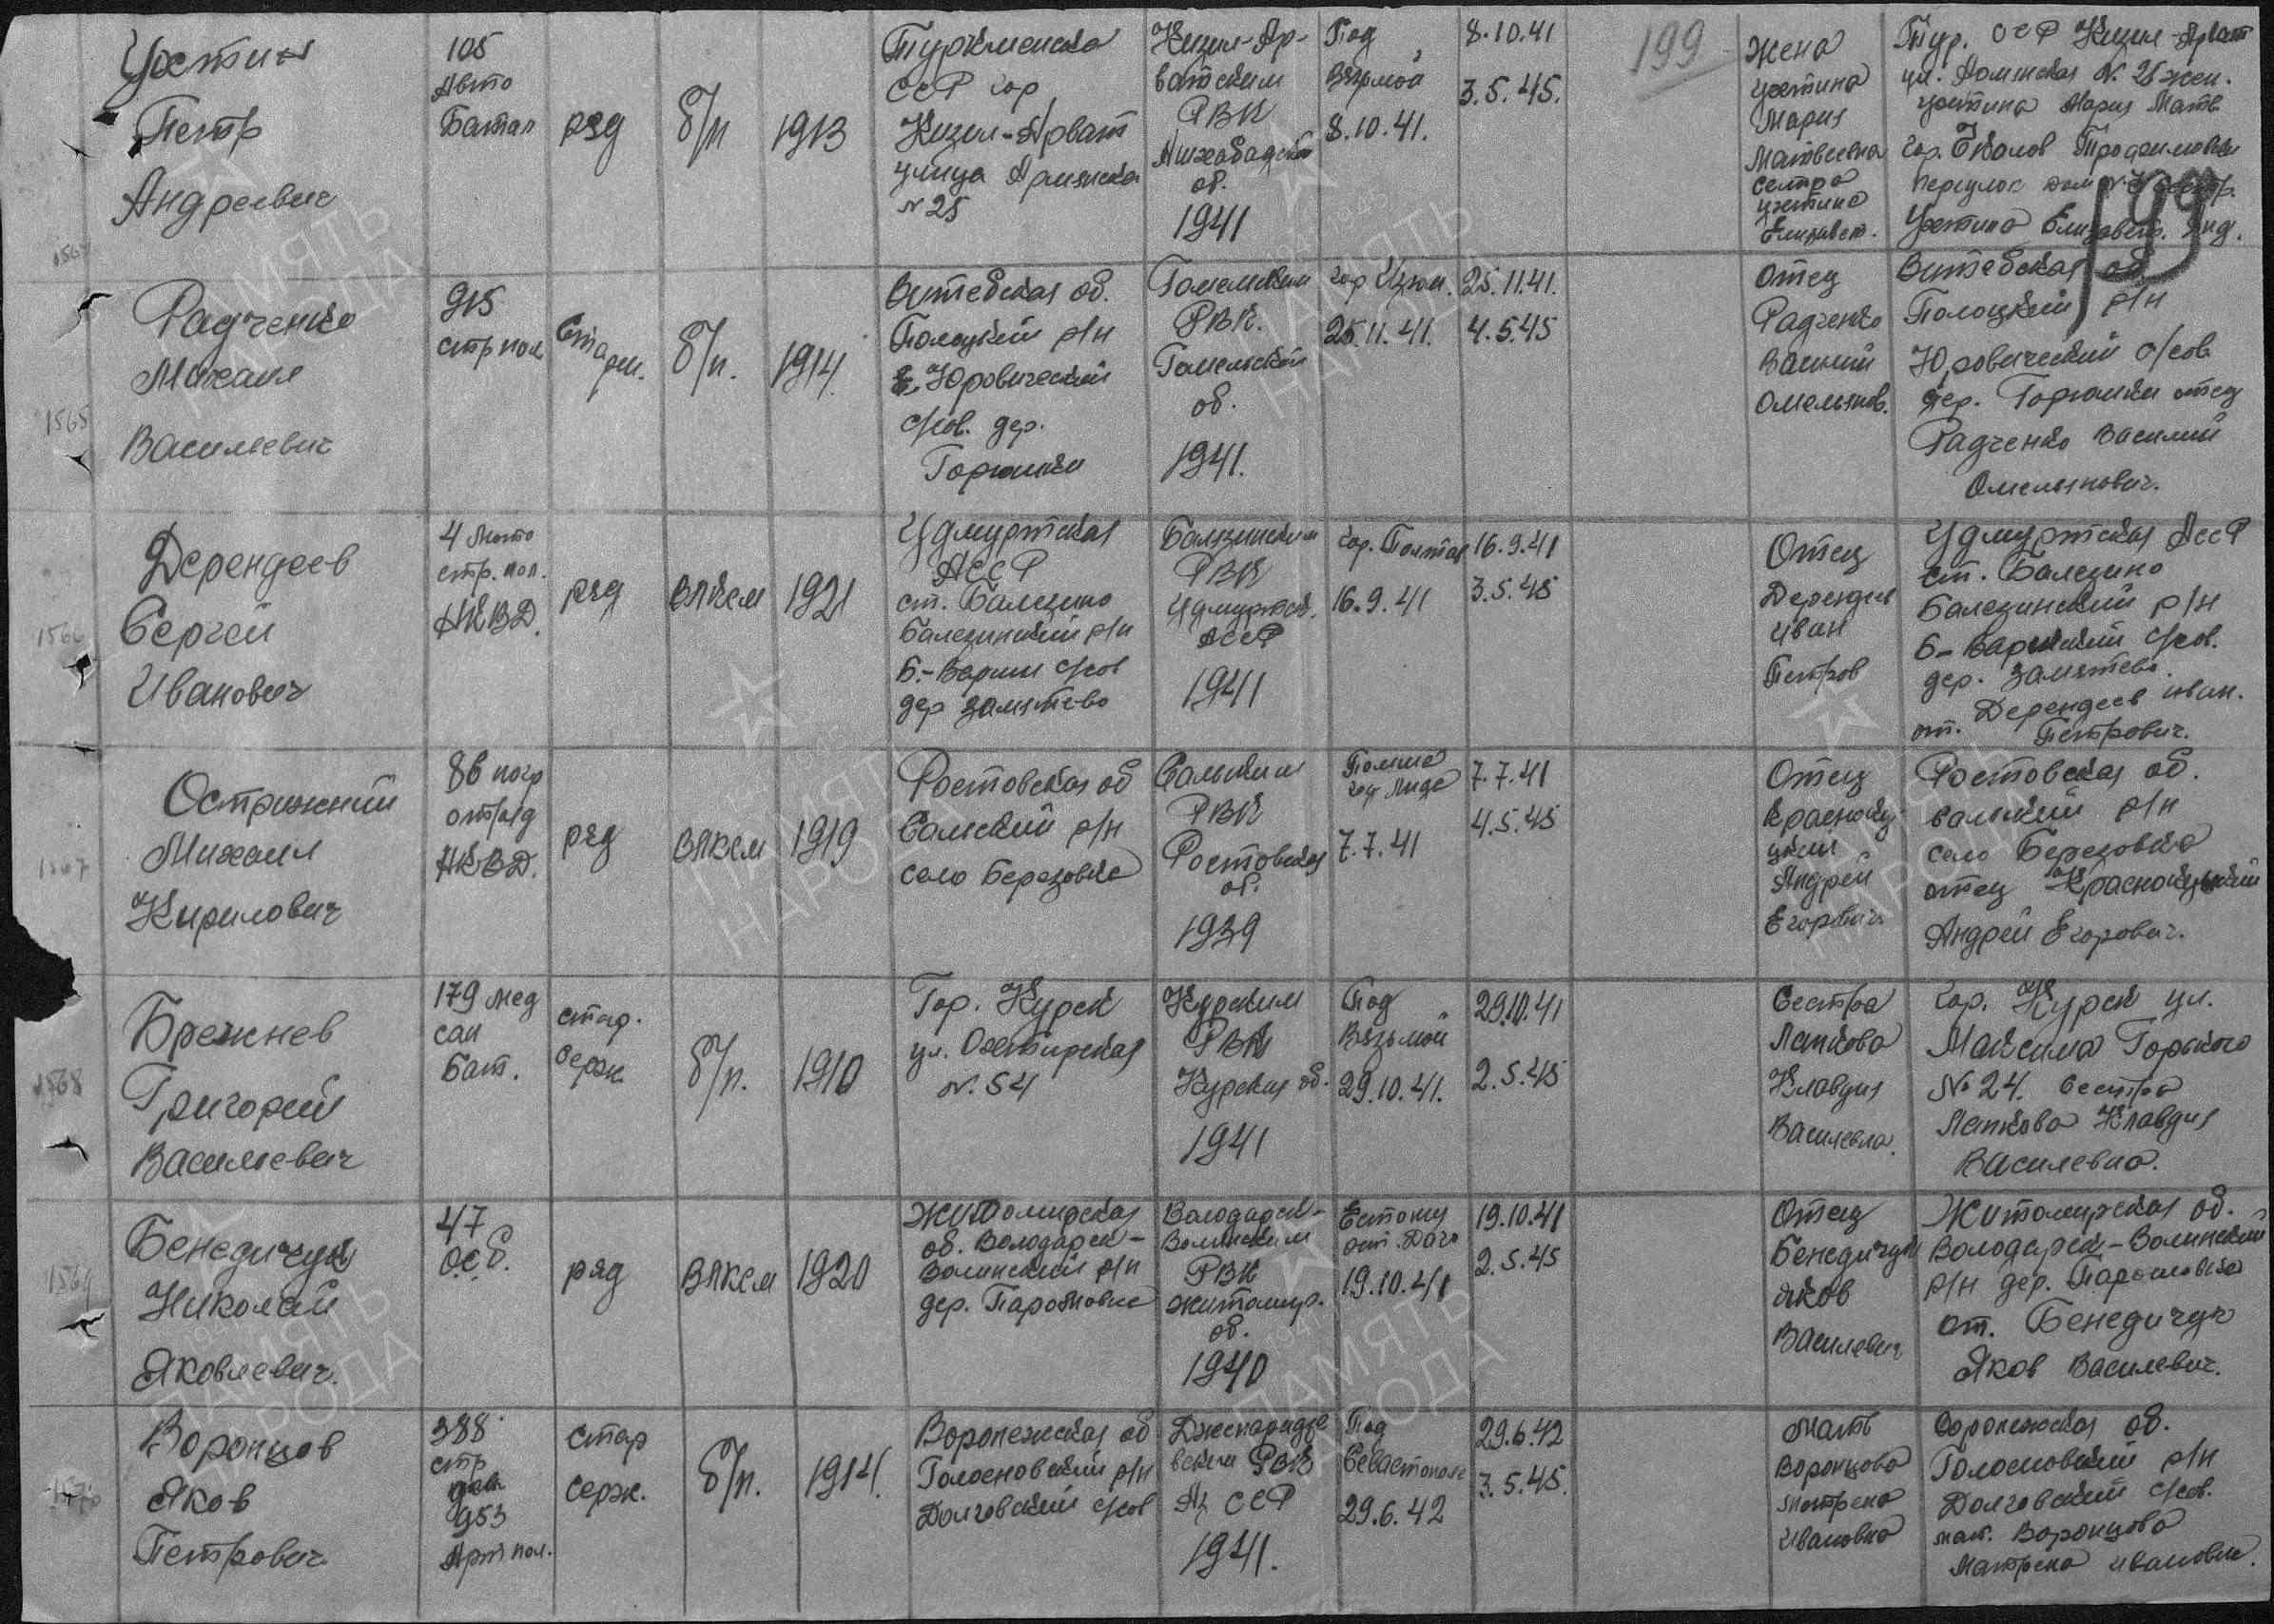 Ухтин
Петр
Андреевич
105
Авто
Батал
ряд
б/п
1913
Туркменска
ССР гор
Кизил-Арват
улица Армянска
N 25
Кизил-Ар-
ватским
РВК
Ашхабадской
об.
1941
Под
Вязьмой
8.10.41.
8.10.41
3.5.45.
199
Жена
Ухтина
Мария
Матвеевна
сестра
Ухтина
Елизавет.
Тур. ССР Кизил-Арват
ул. Армянская N. 25 жен.
Ухтина Мария Матв
гор.
переулок дом
Ухтина Елизавет. Анд.
199
1565
Радченко
Михаил
Василевич
915
стр пол
Старш.
б/п.
1914.
Витебская об.
Полоцкий р/н
Юровический
с/сов. дер.
Горюшки
Гомелским
РВК.
Гомельской
об.
1941.
гор Изюм.
25.11.41.
25.11.41.
4.5.45
Отец
Радченко
Василий
Омельянов.
Витебская об
Полоцкий р/н
Юровический с/сов
дер. Горюшки отец
Радченко Василий
Омельянович.
1566
Дерендеев
Сергей
Иванович
4 Мото
стр. пол.
НКВД.
ряд
ВЛКСМ
1921
Удмуртская
АССР
ст. Балезино
Балезинский р/н
Б.-Варыж с/сов
дер Замятево
Балезинским
РВК
Удмуртск.
АССР
1941
гор. Полтав
16.9.41
16.9.41
3.5.45
Отец
Дерендеев
Иван
Петров
Удмуртская АССР
ст. Балезино
Балезинский р/н
Б-Варыжский с/сов.
дер. Замятево.
Дерендеев Иван.
от. Петрович.
1567
Острижний
Михаил
Кирилович
86 погр
отряд
НКВД.
ряд
ВЛКСМ
1919
Ростовская об
Салский р/н
село Березовке
Салским
РВК
Ростовская
об.
1939
Полша
гор Лида
7.7.41
7.7.41
4.5.45
Отец
Красноку
цкий
Андрей
Егорович
Ростовская об.
Салский р/н
село Березовка
отец Краснокуцкий
Андрей Егорович.
1568
Брежнев
Григорий
Василевич
179 Мед
сан
Бат.
стар.
серж
б/п.
1910
Гор. Курск
ул. Охтирская
N. 54
Курским
РВК
Курская об.
1941
Под
Вязьмой
29.10.41.
29.10.41
2.5.45
Сестра
Лапкова
Клавдия
Василевна.
гор. Курск ул.
Максима Горького
No 24. сестра
Лапкова Клавдия
Василевна.
1569
Бенедичук
Николай
Яковлевич.
47
О.С.Б.
ряд
ВЛКСМ
1920
Житомирская
об. Володарск-
Волинский р/н
дер. Паромовке
Володарск-
Волинским
РВК
Житомир.
об.
1940
Естония
ост. Даго
19.10.41
19.10.41
2.5.45
Отец
Бенедичук
Яков
Василевич
Житомирская об.
Володарск-Волинский
р/н дер. Паромовка
от. Бенедичук
Яков Василевич.
1570
Воронцов
Яков
Петрович
388
стр
див
953
Арт пол.
стар
серж.
б/п.
1914.
Воронежская об
Голосновский р/н
Долговский с/сов
Джепаридзе
вским РВК
Аз ССР
1941.
Под
Севастополе
29.6.42
29.6.42
3.5.45.
Мать
Воронцова
Матрена
Ивановна
Воронежская об.
Голосновский р/н
Долговский с/сов.
мат. Воронцова
Матрена Ивановна.